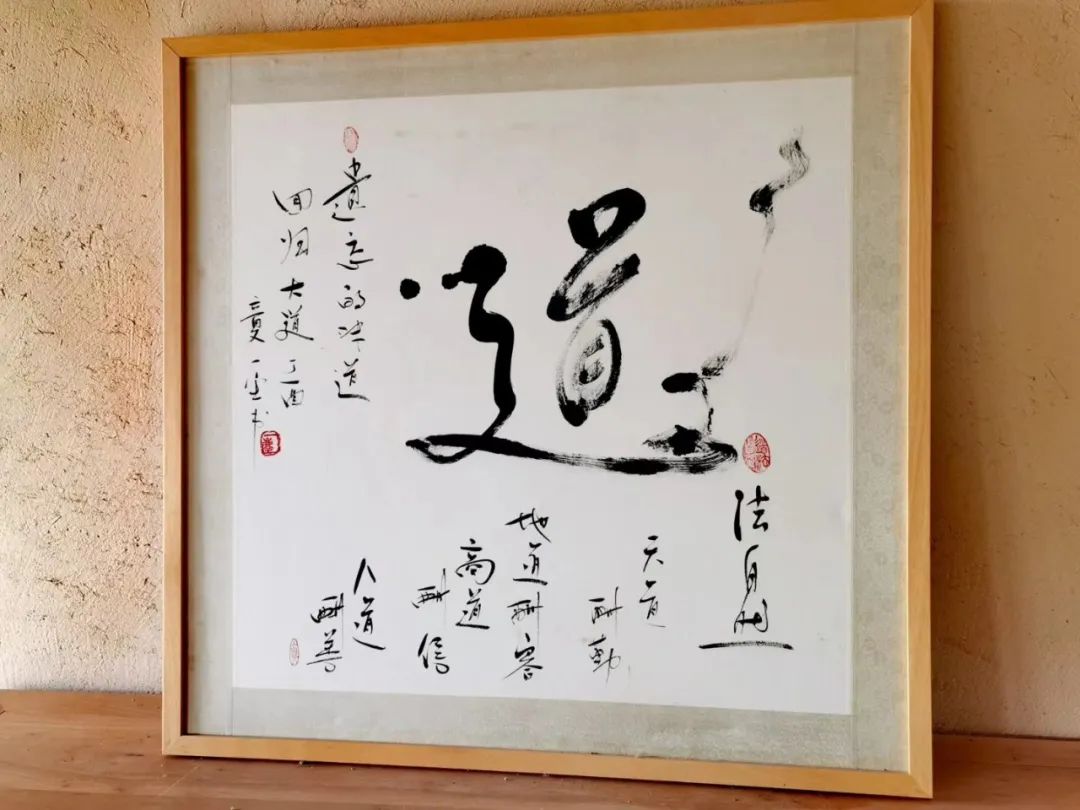 道
法自然
天道
酬勤
地道酬容
商道
酬信
人道
酬善
遗忘的道
回归大道丁酉
夏一书